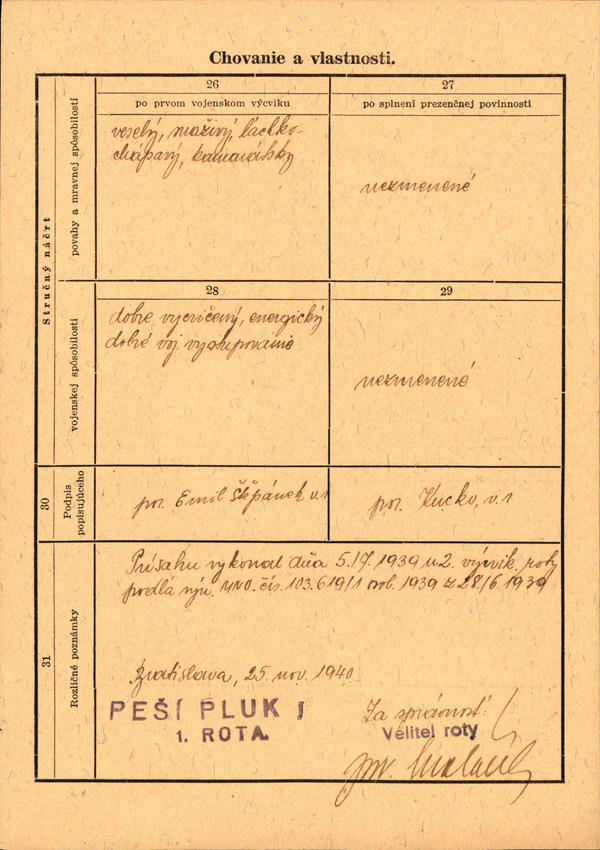 Chovanie a vlastnosti.
Stručný náčrt
povahy a mravnej spôsobilosti
26
po prvom vojenskom výcviku
veselý, snaživý, ľachko-
chápavý, kamarátsky
27
po splnení prezenčnej povinnosti
nezmenené
vojenskej spôsobilosti
28
dobre vycvičený, energický
dobré voj. vystupovanie
29
nezmenené
30
Podpis
popisujúceho
por. Emil Štěpánek v.r
por. Kucko, v.r
31
Rozličné poznámky
Prísahu vykonal dňa 5./7. 1939 u 2. výcvik. roty
podľa výn. MNO. čís. 103.619/1 1939 z 28/6. 1939
Bratislava, 25. nov. 1940
PEŠÍ PLUK 1
1. ROTA.
Za správnosť:
Velitel roty